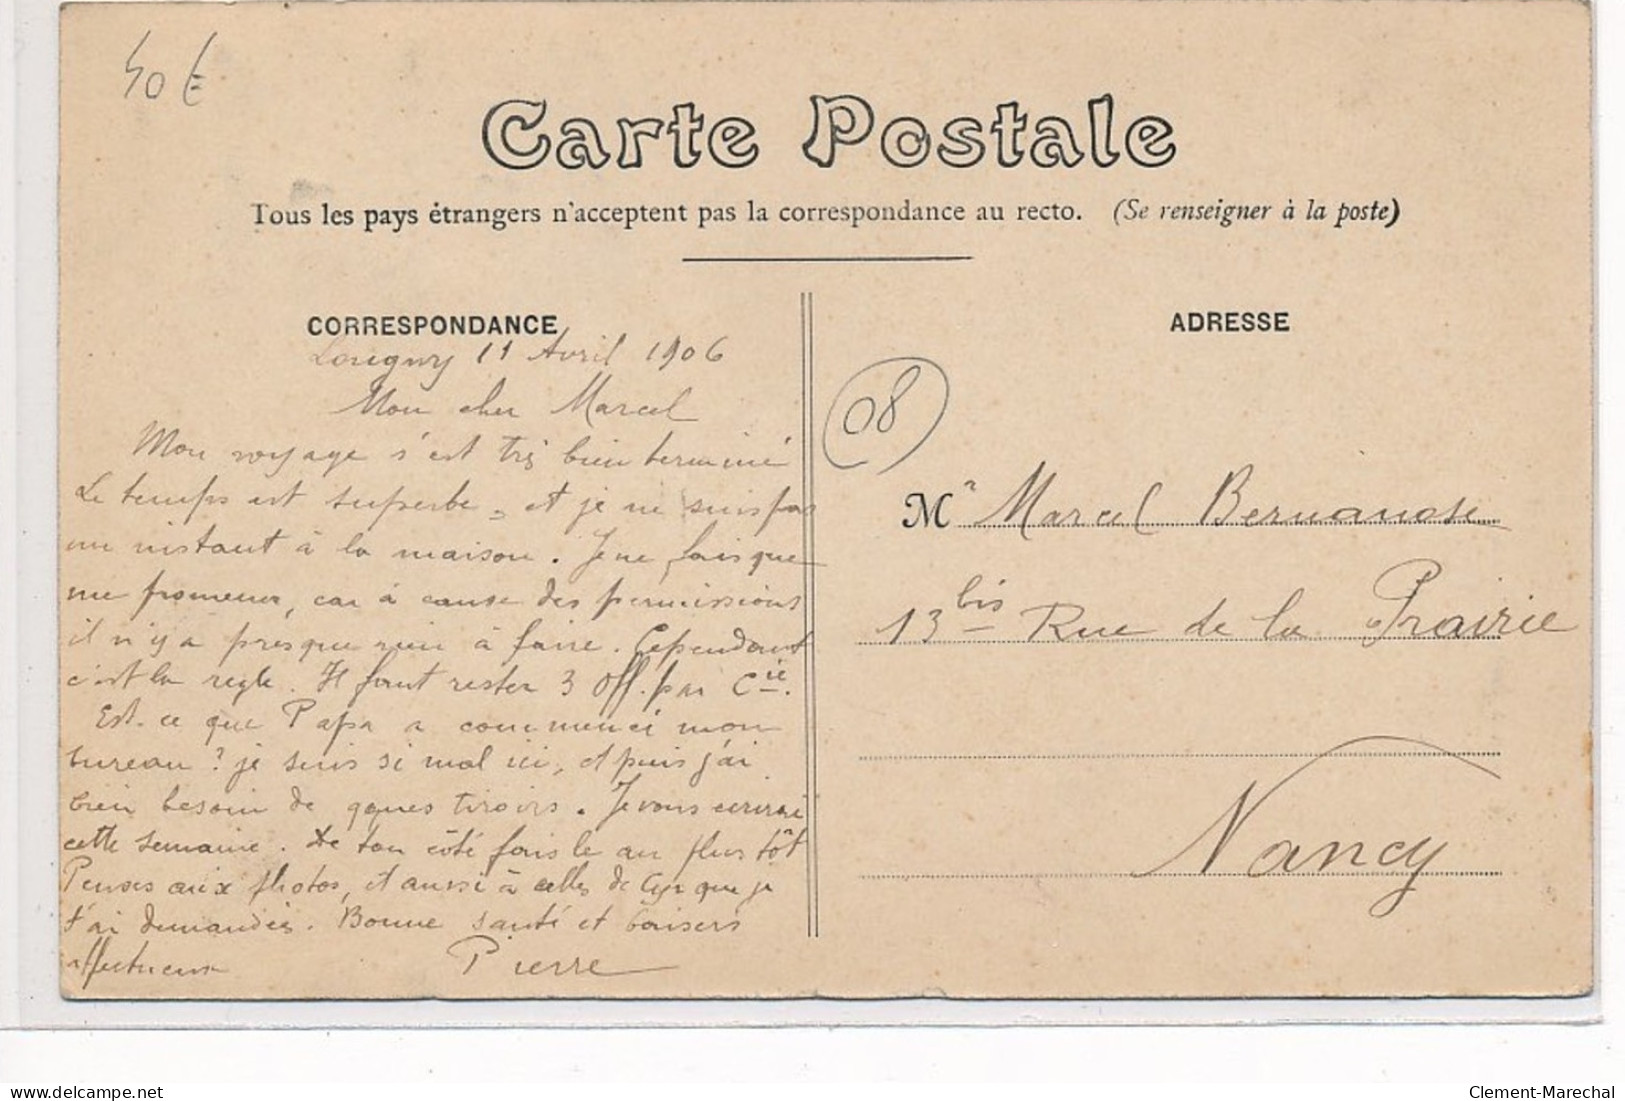 40 €
Carte Postale
Tous les pays étrangers n'acceptent pas la correspondance au recto. (Se renseigner à la poste)
CORRESPONDANCE
11 Avril 1906
Mon cher Marcel
Mon voyage s'est très bien terminé
Le temps est superbe, et je ne suis pas
un instant à la maison. Je ne fais que
me promener, car à cause des permissions
il n'y a presque rien à faire. Cependant
c'est la règle. Il faut rester 3 Off. par Cie.
Est-ce que Papa a commencé mon
bureau ? je suis si mal ici, et puis j'ai
bien besoin de qques tiroirs. Je vous écrirai
cette semaine. De ton côté fais le au plus tôt
Penses aux photos, et aussi à celles de que je
t'ai demandées. Bonne santé et baisers
affectueux Pierre
ADRESSE
08
Mr Marcel Bernanose
13 bis Rue de la Prairie
Nancy
delcampe.net
Clement-Marechal